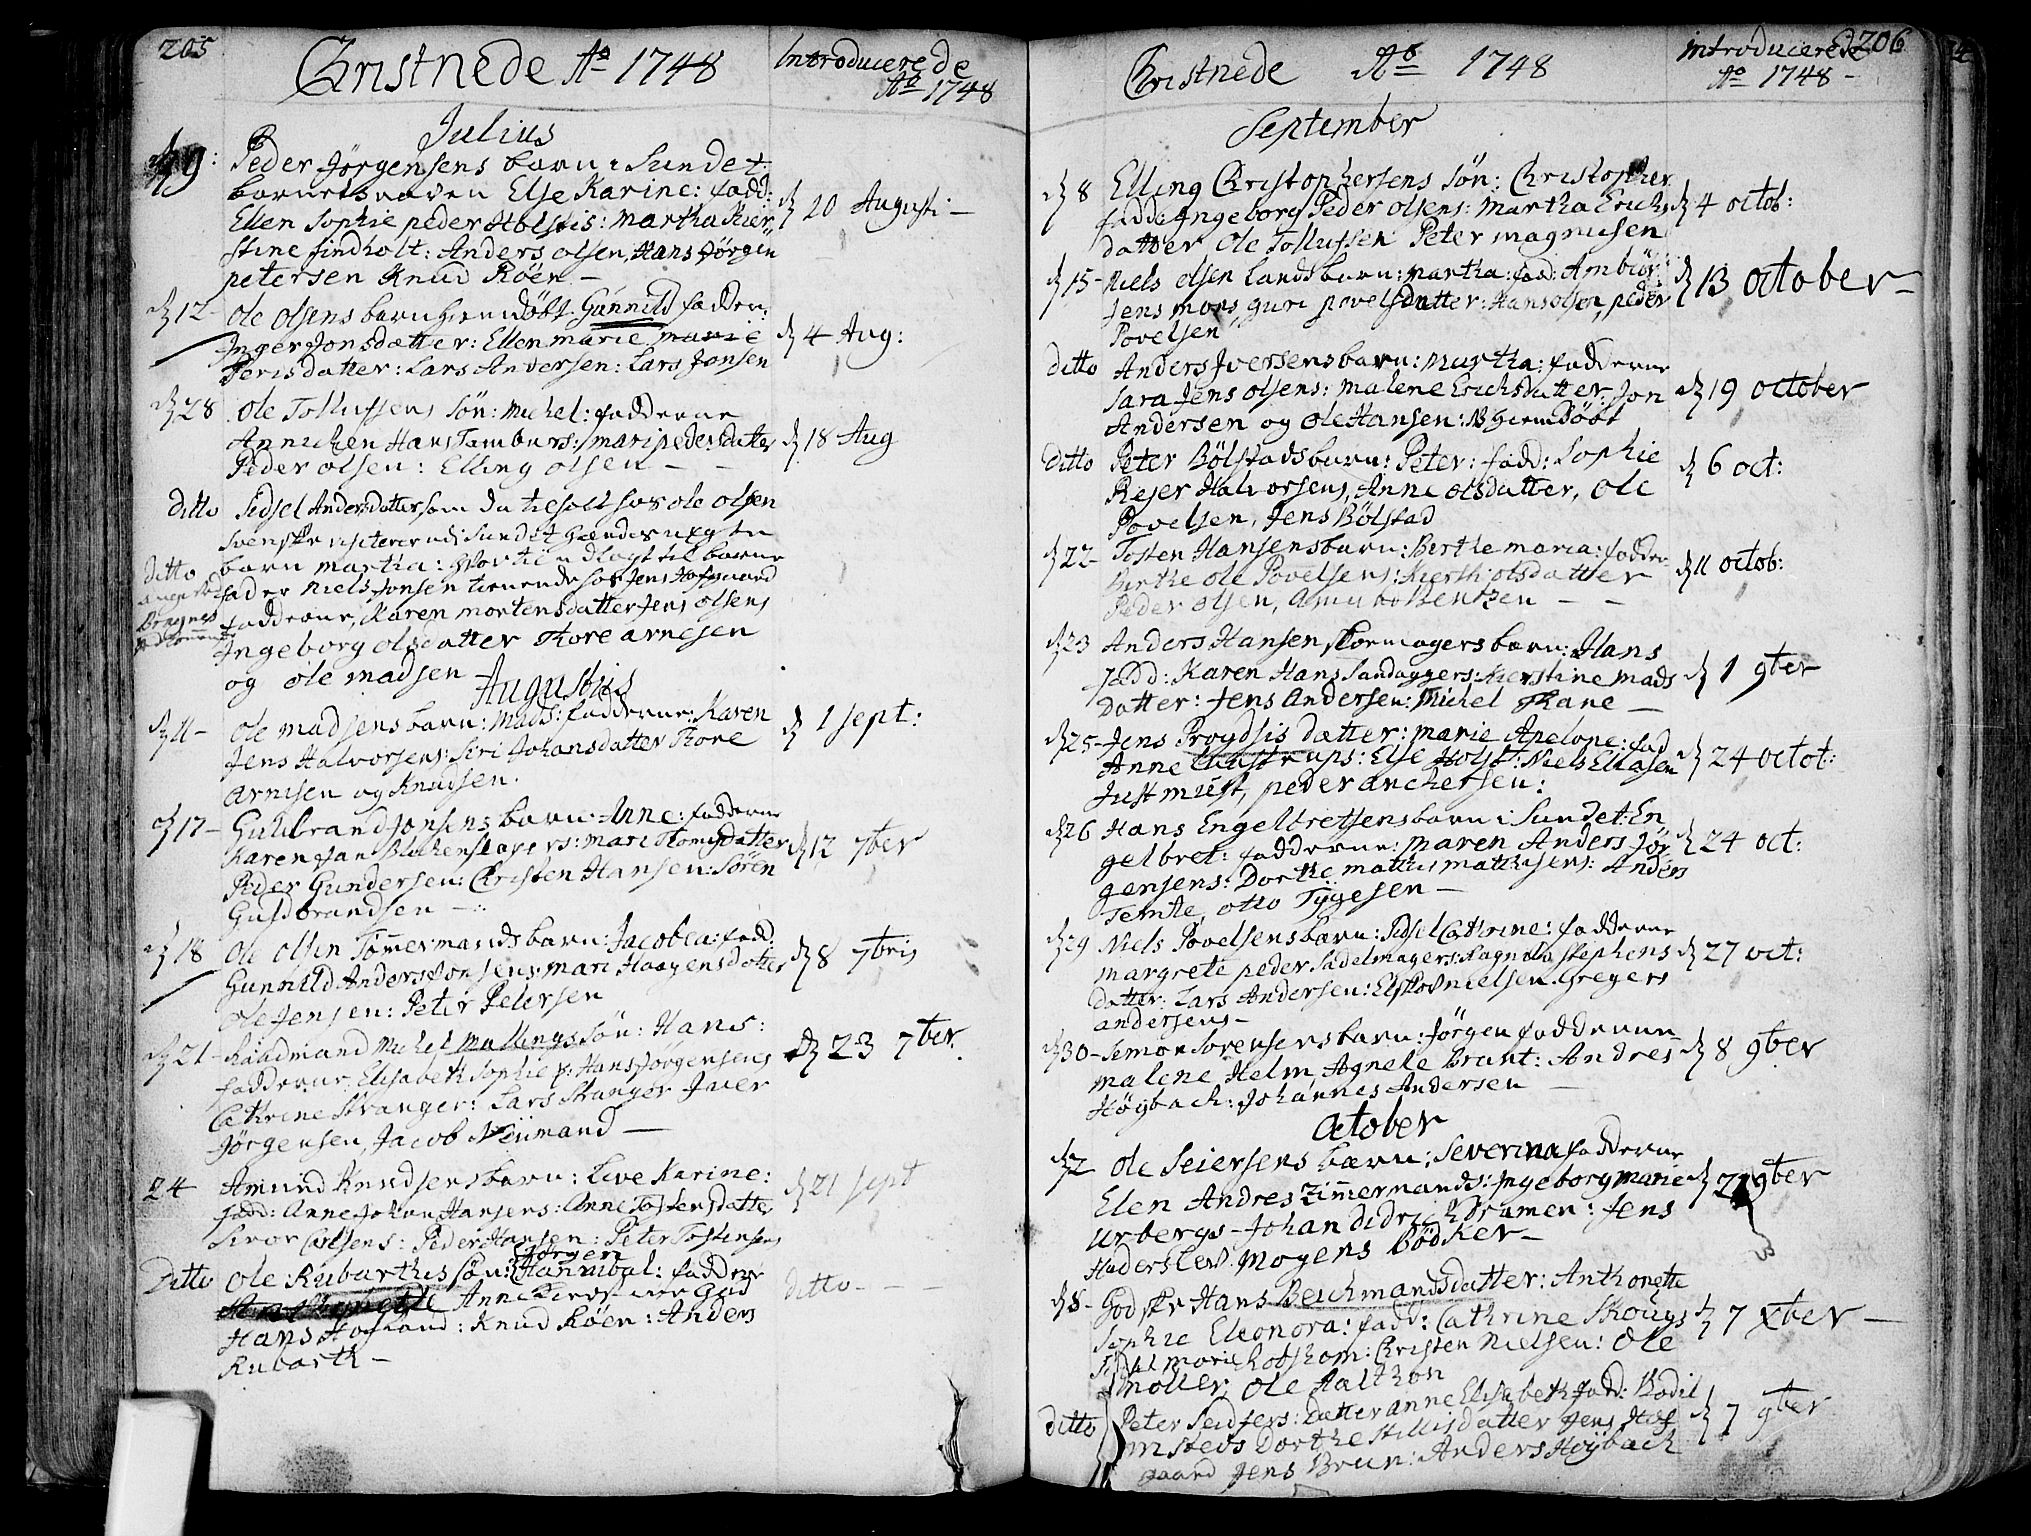 205
Christnede Ao 1748
Introducerede
Ao 1748
Julius
9: Peder Jørgensens barn i Sundet:
barnets naven Else Karine: fadd:
Ellen Sophie peder Holstis: Martha Kier
stine findholt: Anders olsen, Hans Jørgen
petersen Knud Röen —
20 Augusti —
12 - Ole Olsens barn hiemdöbt Gunnild fadder:
Inger Jonsdatter: Ellen marie marie
Perisdatter: Lars Andersen: Lars Jonsen
4 Aug:
28 Ole Tollufsens sön: Michel: fadderne
Annichen Hans Tamburs: mari pedersdatter
Peder olsen: Elling olsen — —
18 Aug
ditto Sidsel Andersdatter som da tieholt hos ole olsen
barn martha:
fader Niels Jonsen tienende hos Jens Hofgaard
fadderne, Karen mortensdatter Jens olsens
Ingeborg olsdatter Thore arnesen
og ole madsen —
ditto
Augustus
11 - Ole madsens barn: Mads: fadderne: Karen
Jens Halvorsens: Siri Johansdatter Thore
arnisen og Knudsen.
1 sept:
17 - Guldbrand Jonsens barn: Anne: fadderne
Karen Jan Blichenslagers: mari Thomisdatter
Peder Gundersen: Christen Hansen: Sören
Guldbrandsen —:
12 7ber
18 Ole Olsen Timermands barn: Jacobea: fadd:
Gunnild Anders Jonsens: mari Haagensdatter
Ole Jensen: Peter Petersen
8 7bris
21 - Raadmand Michel Mallings sön: Hans:
fadderne, Elisabeth Sophie p: Hans Jørgensens
Cathrine Stranger: Lars Stranger Iver
Jørgensen, Jacob Neumand —
23 7ber.
24 Amund Knudsens barn: Live Karine:
fadd: Anne Johan Hansens: Anne Tostensdatter
Siver Carlsens: Peder Hansen: Peter Tostensens
21 sept
Ditto Ole Rubarths sön: Jørgen Hannibal: fadder
Anne
Hans Hofland: Knud Röen: Anders
Rubarth —
ditto - - -
206
Christnede Ao 1748
introducerede
Ao 1748 -
September
8 Elling Christophersens sön: Christopher
fadd: Ingeborg Peder olsens: Martha Erichs
datter Ole Tollufsen Peter magnusen
4 octob:
15 - Niels olsen Lands barn: martha: fad: Ambiör
Jens moes, guri povelsdatter: Hans olsen, peder
Povelsen
13 October —
ditto Anders Iversens barn: Martha: fadderne
Sara Jens olsens: Malene Erichsdatter: Jon
Andersen og Ole Hansen: NB hiemdöbt
19 october
Ditto Peter Bölstads barn: Peter: fadd: Sophie
Rejer Halvorsens, Anne olsdatter, Ole
Povelsen, Jens Bölstad
6 oct:
22 - Tosten Hansens barn: Birthe maria: fadder
birthe ole Povelsens: Kiersti olsdatter
Peder olsen, Amund Bentzen — —
11 octob:
23 Anders Hansen skomagers barn: Hans
fadd: Karen Hans Sandaggers: Kierstine Mads
datter: Jens Andersen: Michel Thane —
1 9ber
25 - Jens Proydsis datter: Marie Apelone: fad
Anne Castrups: Else Holst: Niels Eliasen
Just Must, peder anchersen:
24 octob:
26 Hans Engelbretsens barn i Sundet: En
gelbret: fadderne: Maren Anders Jör
gensens: Dorthe mathis matthisens: Anders
Temte, Otto Tygesen —
24 oct:
29 Niels Povelsens barn: Sidsel Cathrine: fadderne
margrete peder Sadelmagers: Stephens
datter: Lars Andersen: Nielsen. Gregers
andersens —
27 oct:
30 - Simon Sorensens barn: Jørgen fadderne
malene Helm Agnete Brant: Andres
Høybach: Johannes Andersen —
8 9ber
October
2 Ole Seiersens barn: Severina fadderne
Elen Andres Zimmermands: Ingeborg marie
Urbergs - Johan Didrich Dramen: Jens
Haderslev Mogens Bödker —
9ber
8 - Hans Beichmands datter: Anthonette
Sophie Eleonora: fadd: Cathrine Skougs
marie Robsham: Christen Nielsen: Ole
möller, Ole Aalthon
7 xber —
ditto Peter Seidfers: datter anne Elisabeth fadd: Bodil
Dorthe Stillisdatter Jens Hof
gaard Jens Brun: Anders Høybach
7 9ber